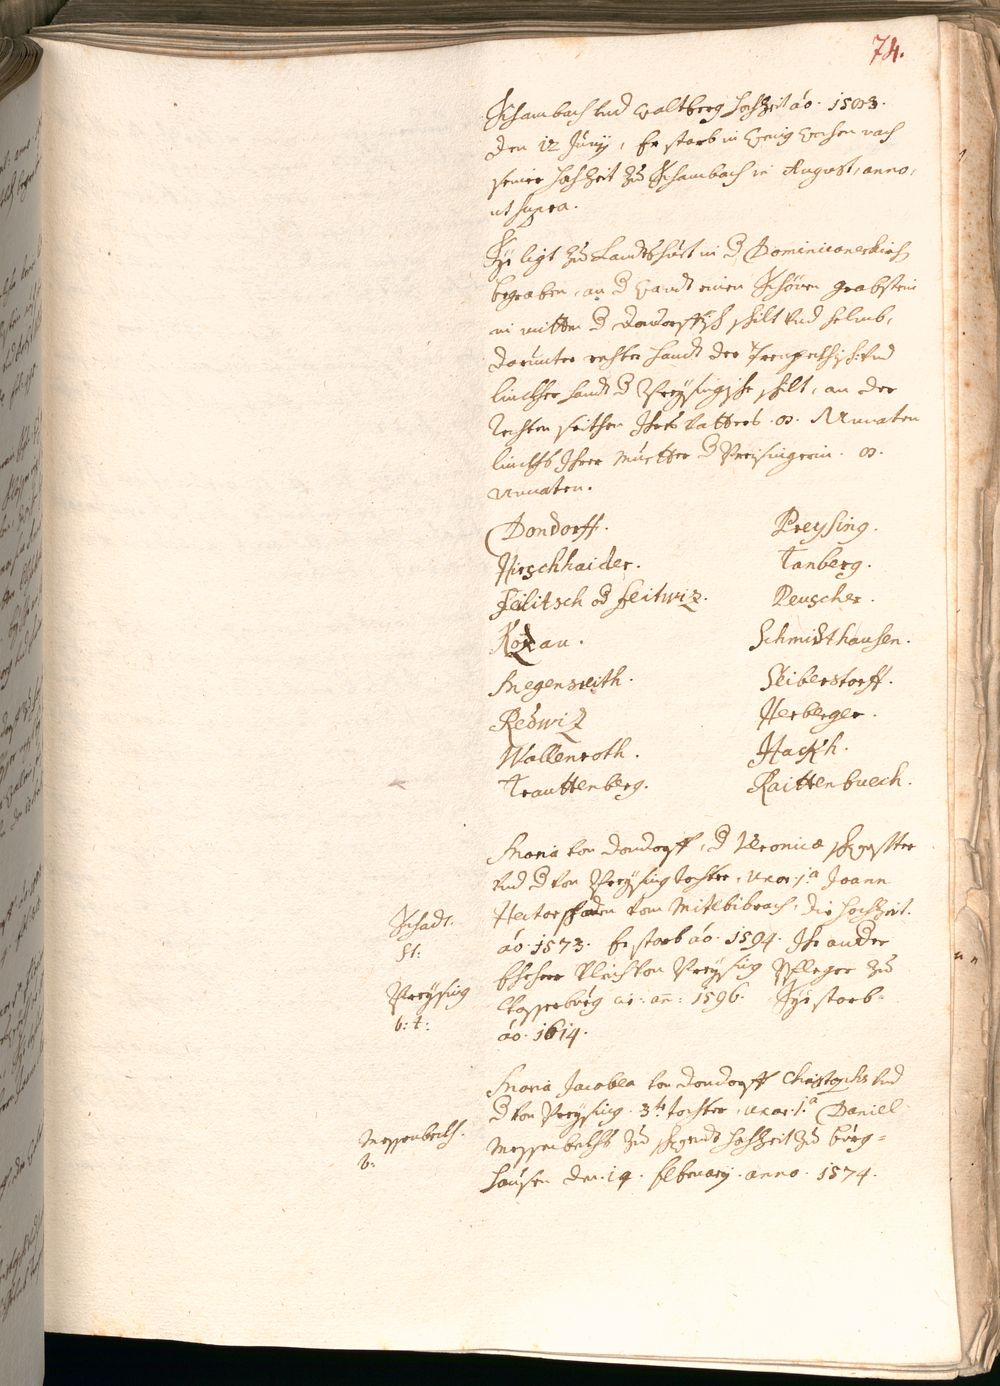 74.
Schambach vnd Waltberg hochzeit aō. 1583.
den 12 Junij, Er starb in Wenig Wochen nach
seiner hochZeit zu Schambach in August, anno,
ut supra.
Sÿe ligt zu Landtshuet in d Dominicanerkirch
begraben, an d Wandt einen Schönen grabstein
in mitten d Dondorffisch schilt vnd helmb,
darunter rechter handt der Trenpekhisch vnd
linckher handt d Preÿsingische schilt, an der
Rechten seithen Ihres Vatters .8. Annaten
linckhs Ihrer Muetter d Preisingerin .8.
Annaten.
Dondorff. Preysing.
Hirschhaider. Tanberg.
Feilitsch od feitwiz. Peuscher.
Kozau. Schmidthausen.
Megensreith. Seiberstorff.
Redwiz Herberger.
Wallenroth. Hackh.
Trauttenberg. Raittenbuech.
Maria von Dondorff, d Veronicæ schwester
vnd d von Preÿsing tochter, uxor .1.a Joann
Schadt. Hector schaden vom Mitlbibrach, die hochzeit.
st: aō. 1573. Er starb aō. 1594. Ihr ander
Eheherr Vlrich von Preÿsing Pfleger zu
Preÿsing
b: t: ai: an: 1596. Sÿe starb
aō. 1614.
Maria Jacobea von Dondorff Christophs vnd
d von Preÿsing .3te tochter, uxor .1.a Daniel
Messenbeckh.
b: Messenbekhs zu schwendt hochzeit zu burg=
hausen den .14. februarij. anno. 1574.